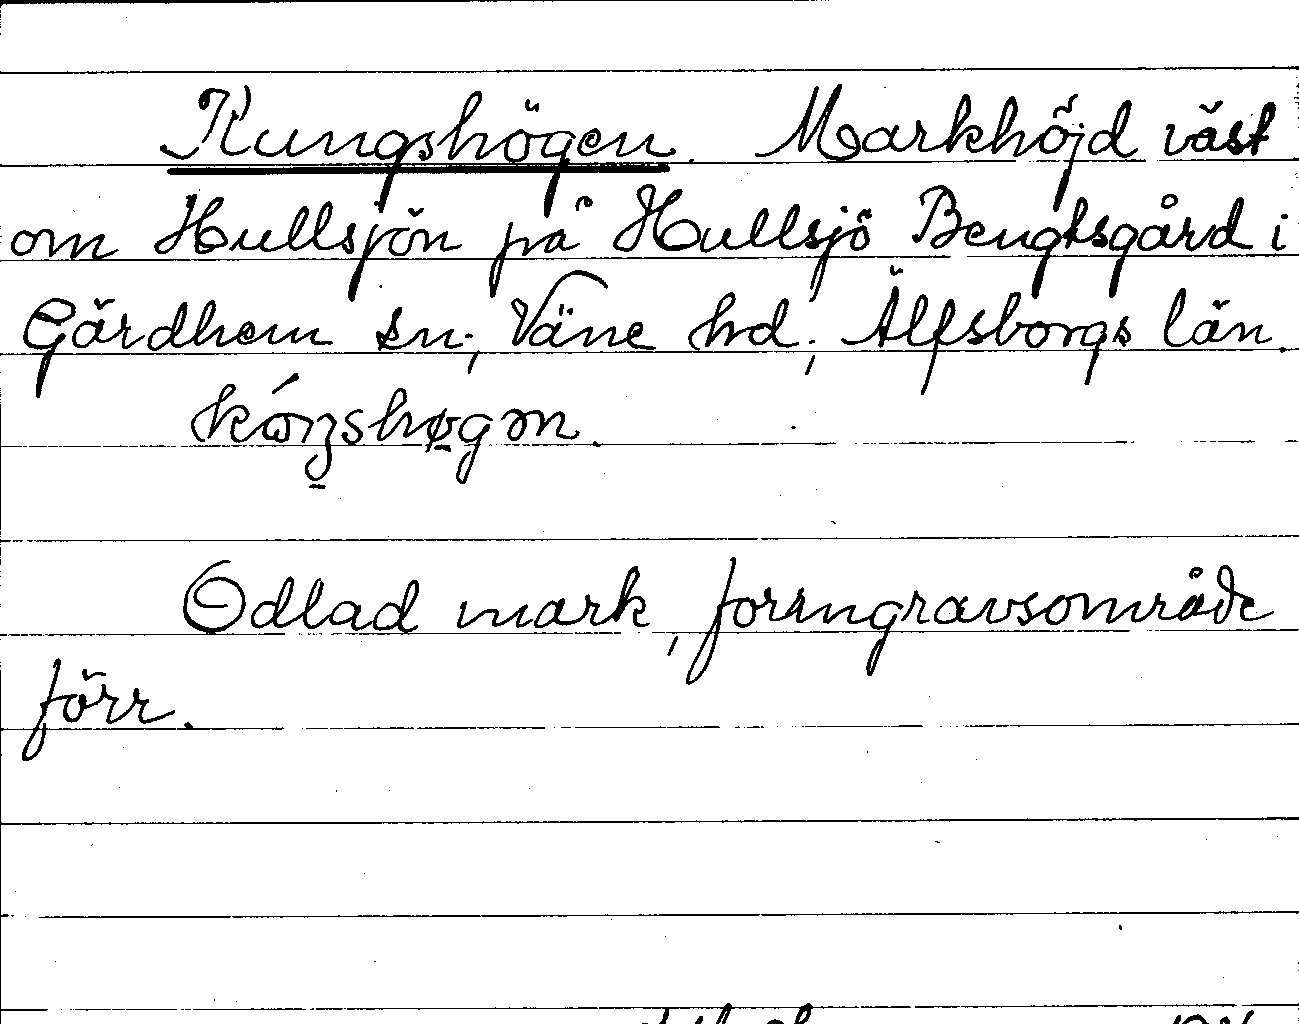 Kungshögen. Markhöjd väst
om Hullsjön på Hullsjö Bengtsgård i
Gärdhem sn; Väne hd; Älfsborgs län.
Odlad mark, forngravsområde
förr.